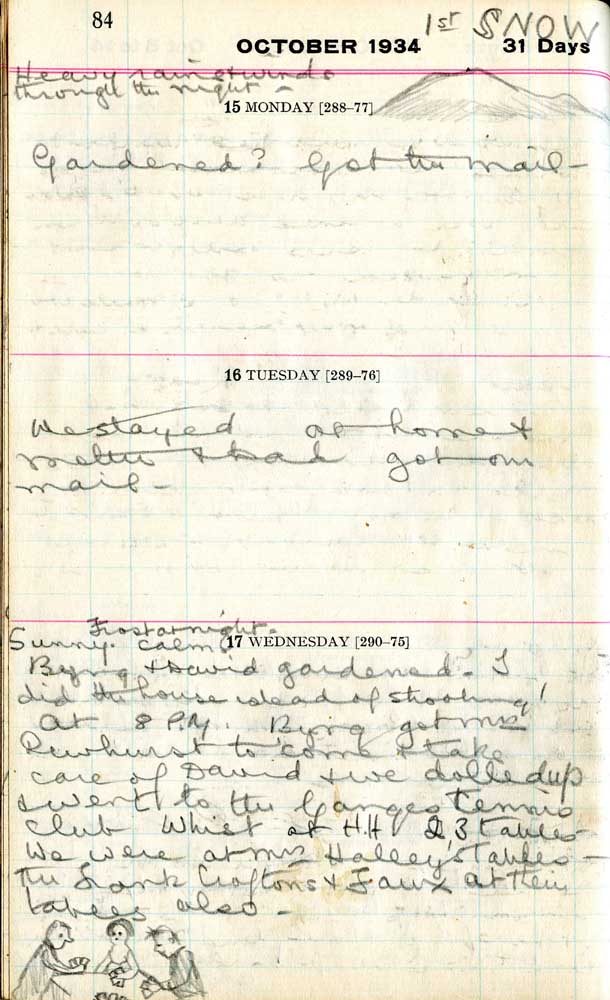 84
1st SNOW
OCTOBER 1934 31 Days
Heavy rains & winds
through the night -
15 MONDAY [288–77]
Gardened? Got the mail -
16 TUESDAY [289–76]
We stayed at home &
& had got our
mail -
Frost at night.
Sunny. calm
17 WEDNESDAY [290–75]
Byng & David gardened - I
did the house idead of shooting!
At 8 P.M. Byng got Mrs
to come & take
care of David & we dolled up
& went to the Ganges Tennis
Club Whist at H.H. 23 tables
We were at Mrs Halley's tables -
The Frank Croftons & at their
tables also -